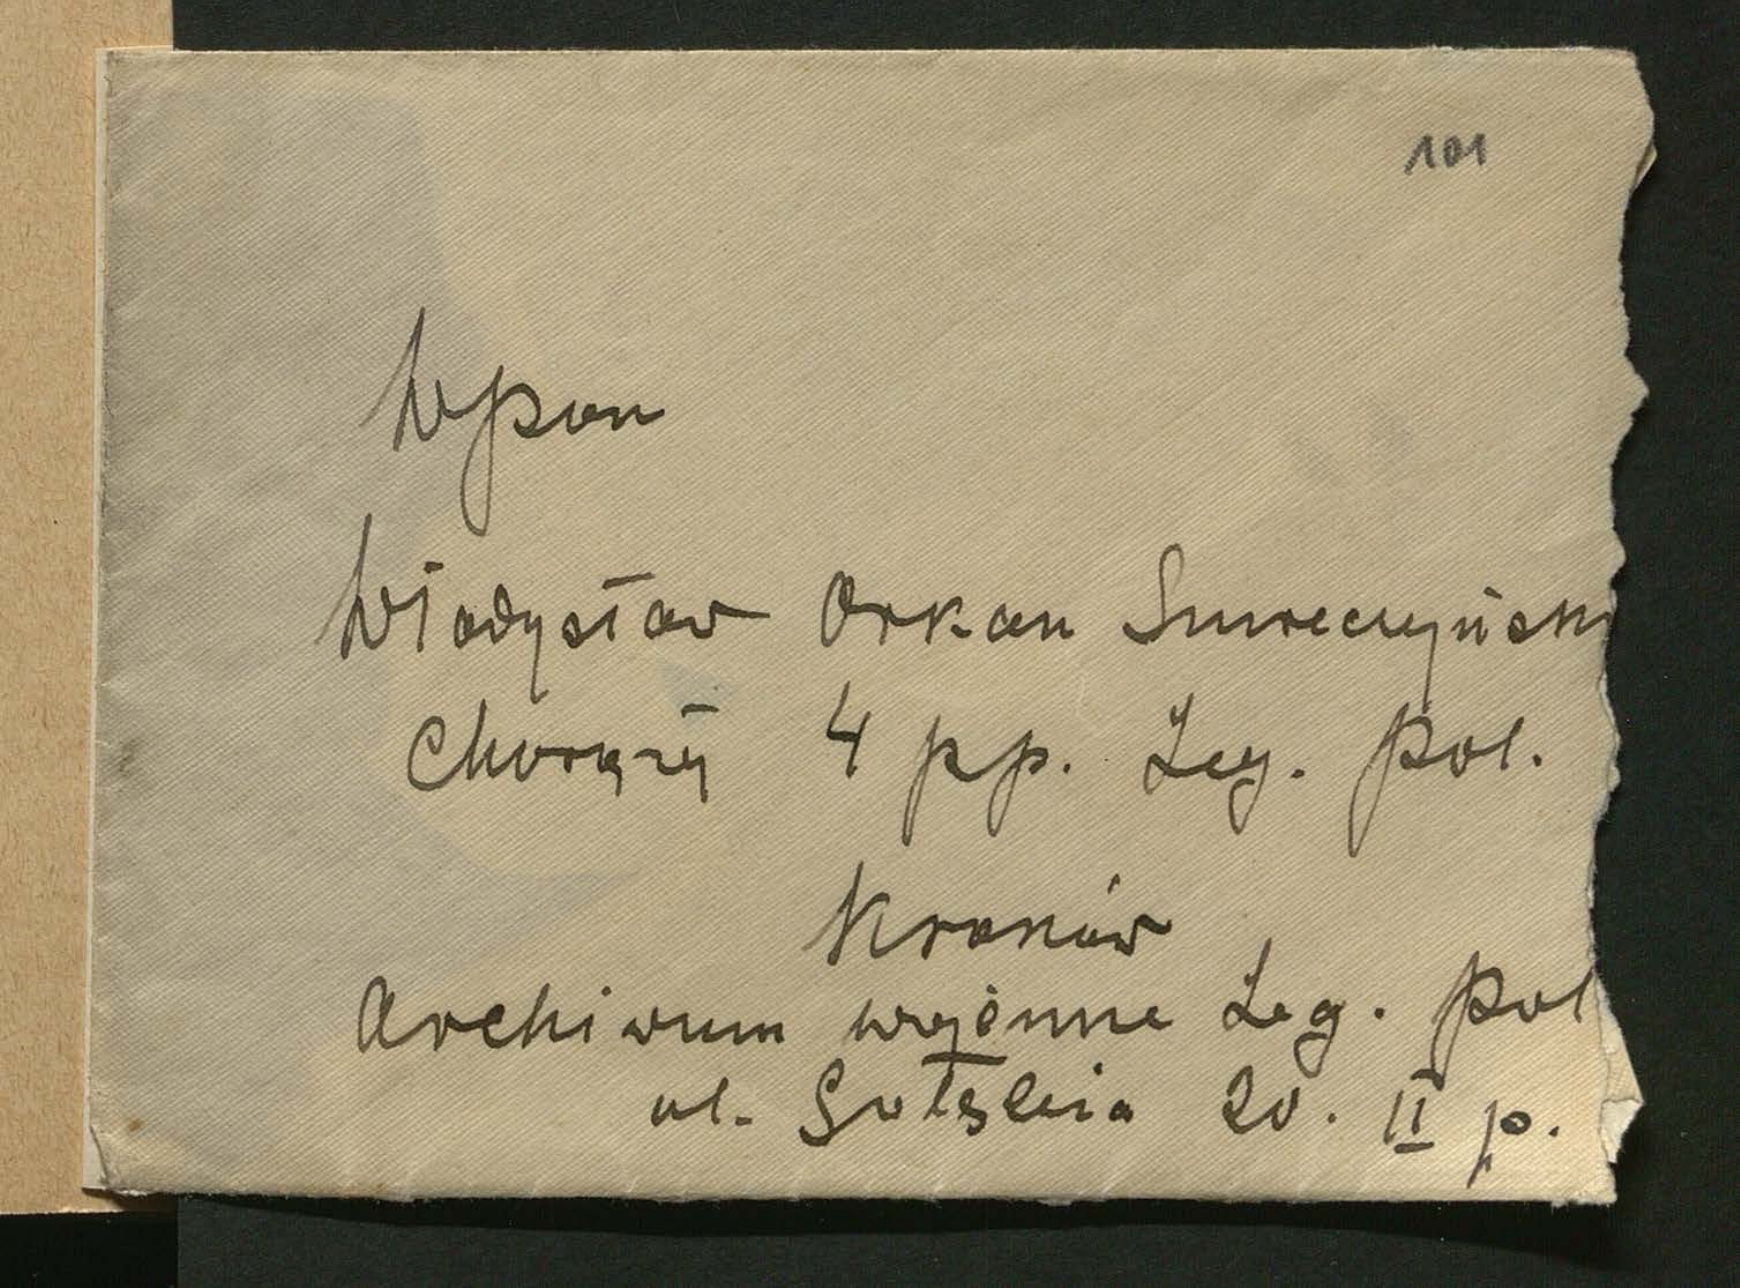 101
Wpan
Władysław Orkan Smreczyńsk
Chorąży 4 pp. Leg. Pol.
Kraków
Archiwum wojenne Leg. Pol
ul. Gołębia 20. II p.